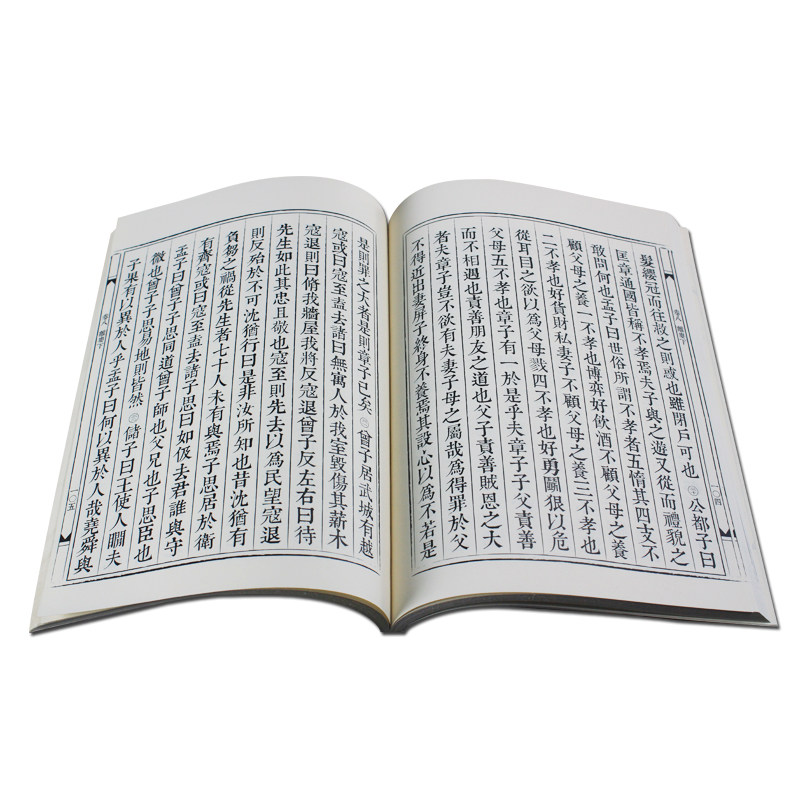 髮纓冠而往救之則惑也雖閉戶可也 公都子曰
匡章通國皆稱不孝焉夫子與之遊又從而禮貌之
敢問何也孟子曰世俗所謂不孝者五惰其四支不
顧父母之養一不孝也博弈好飲酒不顧父母之養
二不孝也好貨財私妻子不顧父母之養三不孝也
從耳目之欲以爲父母戮四不孝也好勇鬭狠以危
父母五不孝也章子有一於是乎夫章子子父責善
而不相遇也責善朋友之道也父子責善賊恩之大
者夫章子豈不欲有夫妻子母之屬哉爲得罪於父
不得近出妻屏子終身不養焉其設心以爲不若是
是則罪之大者是則章子已矣 曾子居武城有越
寇或曰寇至盍去諸曰無寓人於我室毀傷其薪木
寇退則曰修我牆屋我將反寇退曾子反左右曰待
先生如此其忠且敬也寇至則先去以爲民望寇退
則反殆於不可沈猶行曰是非汝所知也昔沈猶有
負芻之禍從先生者七十人未有與焉子思居於衛
有齊寇或曰寇至盍去諸子思曰如伋去君誰與守
孟子曰曾子子思同道曾子師也父兄也子思臣也
微也曾子子思易地則皆然 儲子曰王使人瞯夫
子果有以異於人乎孟子曰何以異於人哉堯舜與
卷八 離婁下